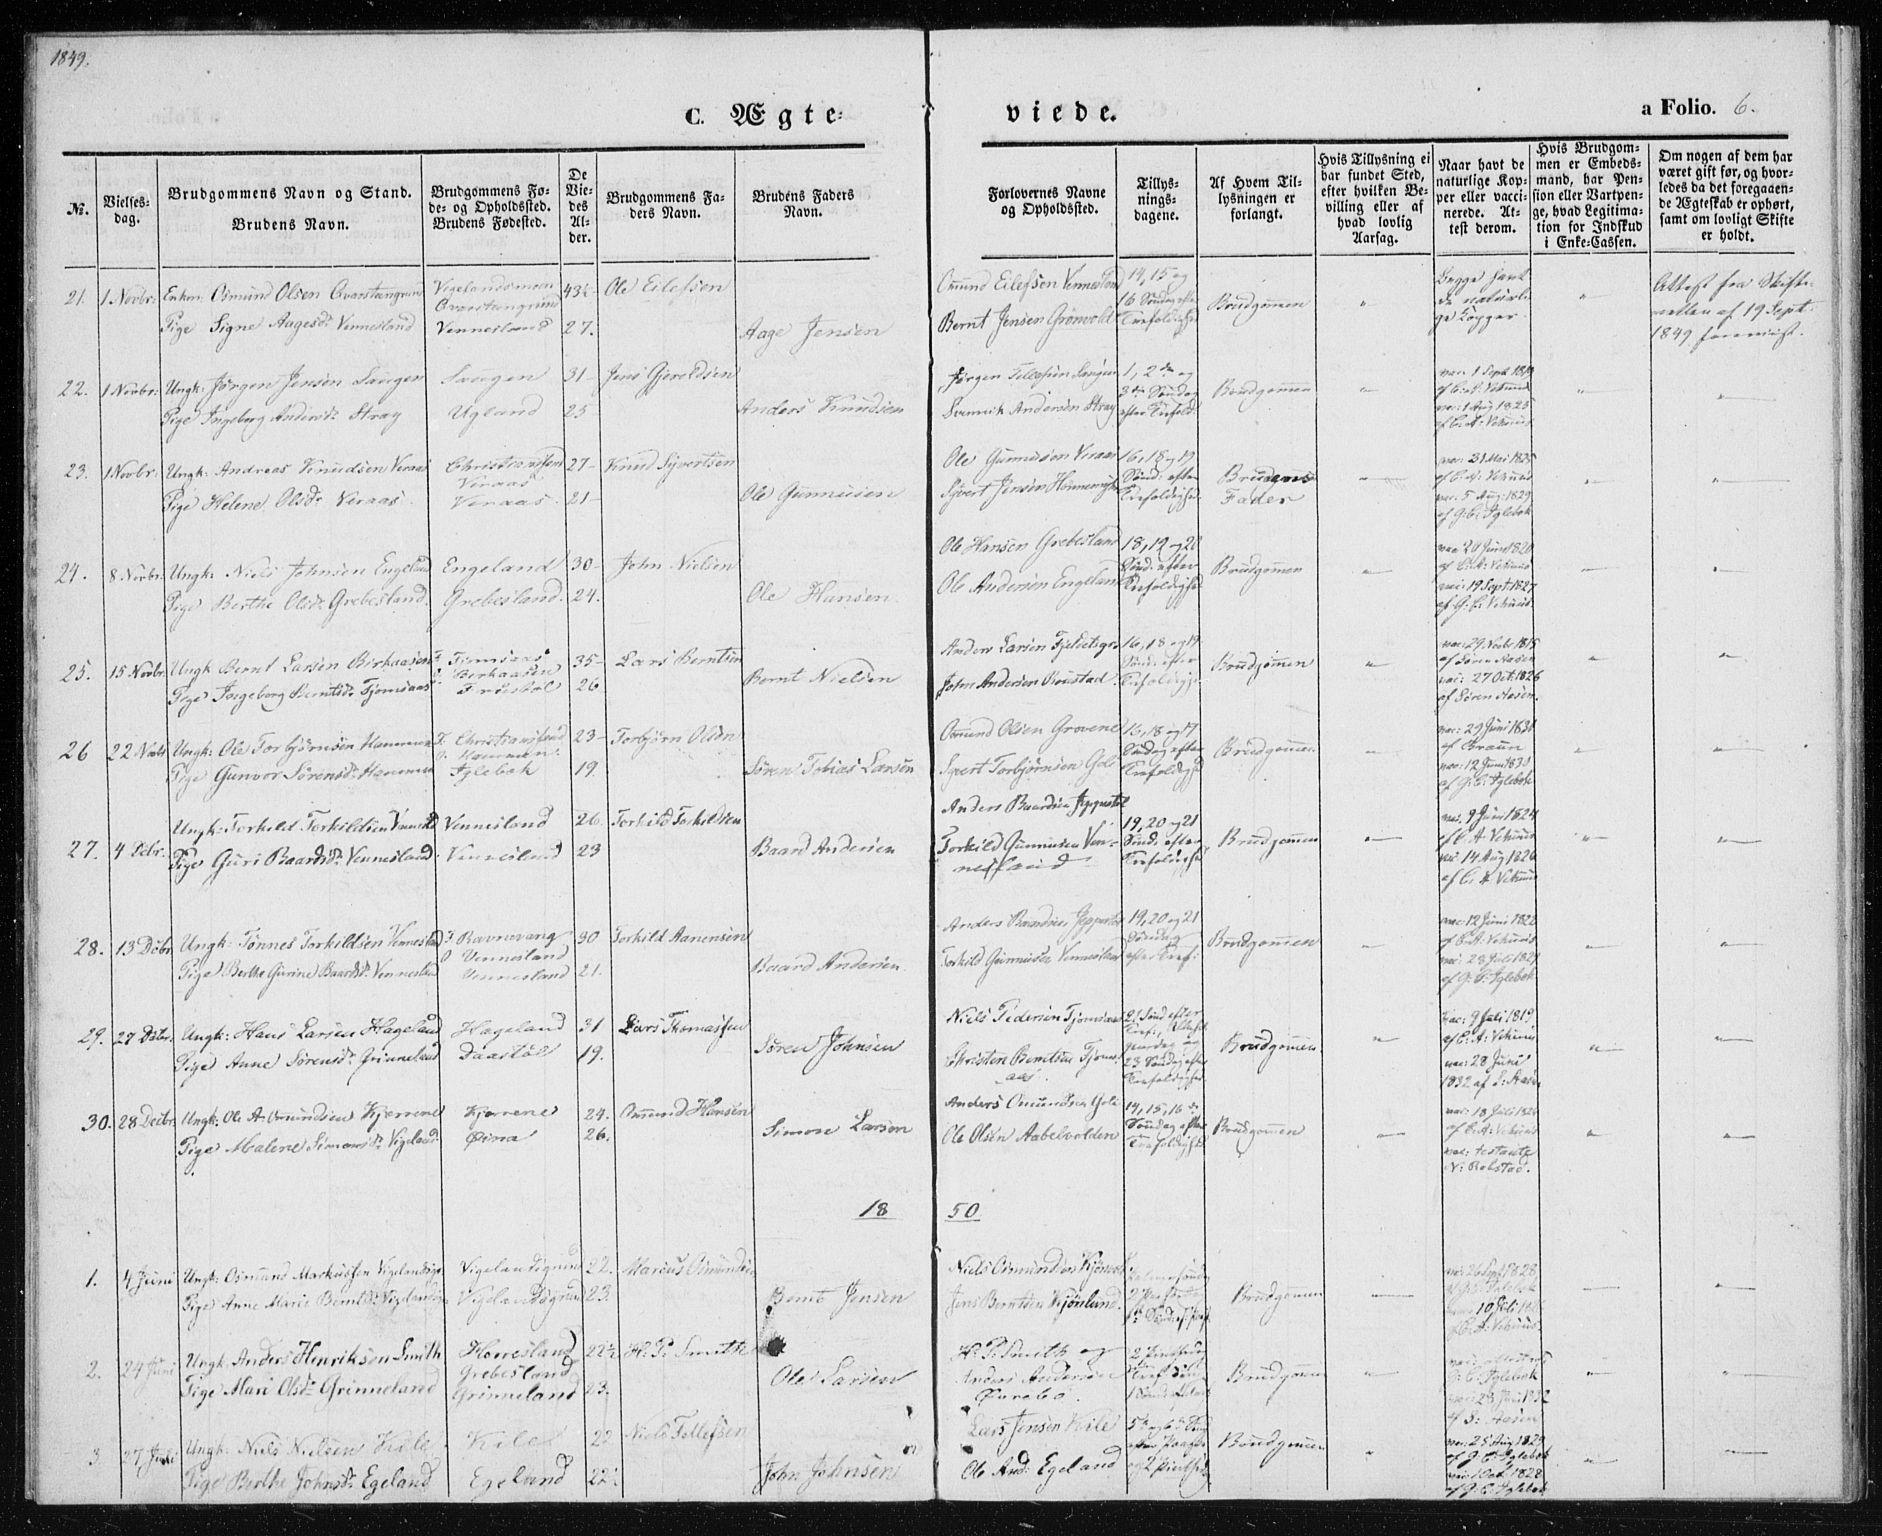 1849.
C. Ægte-
viede.
a Folio. 6.
№.
Vielses-
dag.
Brudgommens Navn og Stand.
Brudens Navn.
Brudgommens Fø-
de- og Opholdssted.
Brudens Fødested.
De
Vie-
des
Al-
der.
Brudgommens Fa-
ders Navn.
Brudens Faders
Navn.
Forlovernes Navne
og Opholdssted.
Tillys-
nings-
dagene.
Af Hvem Til-
lysningen er
forlangt.
Hvis Tillysning ei
har fundet Sted,
efter hvilken Be-
villing eller af
hvad lovlig
Aarsag.
Naar havt de
naturlige Kop-
per eller vacci-
nerede. At-
test derom.
Hvis Brudgom-
men er Embeds-
mand, har Pen-
sion eller Vartpen-
ge, hvad Legitima-
tion for Indskud
i Enke-Cassen.
Om nogen af dem har
været gift før, og hvor-
ledes da det foregaaen-
de Ægteskab er ophørt,
samt om lovligt Skifte
er holdt.
21. 1 Novbr: Enkm: Osmund Olsen Qvarstengrund
Pige Signe Aagesdr Vennesland
Vigelandsmoen
Qvarstengrund
Vennesland
43½
27.
Ole Eilefsen
Aage Jensen
Omund Eilefsen Vennesland
Bernt Jensen Grönvold
14, 15 og
16 Søndag efter
Trefoldighd
Brudgommen
Begge havt
de naturli-
ge Kopper.
Attest fra Skifte-
retten af 19 Sept.
1849 foreviist.
22. 1 Novbr: Ungk: Jørgen Jensen Langen
Pige Ingeborg Andersdr Stray
Langen
Ugland
31
25
Jens Gjeruldsen
Anders Knudsen
Jørgen Tellefsen Langen
Andersen Stray
1, 2den og
3die Søndag
efter Trefold:
Brudgommen
af C: A: Vehuus
vac: 1 Aug 1825
af C: A: Vehuus
23. 1 Novbr: Ungk: Andreas Knudsen Veraas
Pige Helene Olsdr Veraas
Christiansand
Veraas
Veraas
27
21
Knud Syvertsen
Ole Gunnusen
Ole Gunnusen Veraas
Syvert Jensen
16, 18 og 19
Sönd: efter
Trefoldighd
Brudens
Fader
vac: 31 Mai 1825
af C: A: Vehuus
vac: 5 Aug: 1829
af G: C: Iglebæk
24. 8 Novbr: Ungk: Niels Johnsen Engeland
Pige Berthe Olsdr Grebesland
Engeland
Grebesland
30
24.
John Nielsen
Ole Hansen
Ole Hansen Grebesland
Ole Andersen Engeland
18, 19 og 20
Sönd: efter
Trefoldighd
Brudgommen
vac: 20 Juni 1820
af C: A: Vehuus
vac: 19 Sept 1827
af G: C: Vehuus
25. 15 Novbr Ungk Bernt Larsen Birkaasen
Pige Ingeborg Berntsdr Tjomsaas
Tjomsaas
Berkaasen
35
26
Lars Berntsen
Bernt Nielsen
Anders Larsen
John Andersen Roustad
16, 18 og 19
Sönd: efter
Trefoldighd
Brudgommen
vac: 29 Novbr 1815
af Sören Aasen
vac: 27 Oct: 1826
af Sören Aasen.
26 22 Novbr Ungk: Ole Torbjörnsen Hammen
Pige Gunvor Sörensdr Hammen
F. Christiansand
O. Hammen
Iglebæk
23
19.
Torbjörn Olsen
Sören Tobias Larsen
Osmund Olsen Grovene
Syvert Torbjörnsen Gole
16, 18 og 19
Söndag efter
Trefoldighd
Brudgommen
vac: 29 Juni 1831
af Braun
vac: 12 Juni 1830
af G: C: Iglebæk
27. 4 Decbr. Ungk: Torkild Torkildsen Vennesld
Pige Guri Baardsdr Vennesland
Vennesland
Vennesland
26
23
Torkild Torkildsen
Baard Andersen
Anders Baardsen Jeppestøl
Torkild Gunnusen Ven-
nesland
19, 20 og 21
Sönd: efter
Trefoldighd
Brudgommen
vac: 9 Juni 1824
af C: A: Vehuus
vac: 14 Aug 1826
af C: A: Vehuus
28. 13 Decbr Ungk: Tönnes Torkildsen Vennesland
Pige Berthe Gurine Baardsdr Vennesland
F Ravnevang
O Vennesland
Vennesland
30
21.
Torkild Aanensen
Baard Andersen
Anders Baardsen Jeppestøl
Torkild Gunnusen Vennesland
19, 20 og 21
Söndag
efter Tref:
Brudgommen
vac: 12 Juni 1822
af C: A: Vehuus
vac: 28 Juli 1829
af G: C: Iglebæk
29. 27 Decbr Ungk: Hans Larsen Hageland
Pige Anne Sörensdr Grinneland
Hageland
Daastöl
31
19.
Lars Thomassen
Sören Johnsen
Niels Pedersen Tjomsaas
Christen Berntsen Tjoms-
aas.
21 Sönd efter
Tref:,
og
23 Söndag efter
Trefoldighd
Brudgommen
vac: 9 Juli 1819
af C: A: Vehuus
vac: 28 Juni
1832 af S: Aasen
30. 28 Decbr. Ungk: Ole A: Omundsen Kjerrene
Pige Malene Simonsdr Vigeland.
Kjerrene
Øina
24.
26.
Omund Hansen
Simon Larsen
Anders Omundsen Gole
Ole Olsen Aabelvolden
14, 15, 16de
Söndag efter
Trefoldighd
Brudgommen
vac: 18 Juli 1826
af C: A: Vehuus
vac:
N: Robstad.
18 50
1. 4 Juni Ungk: Osmund Markussen Vigelandsgr
Pige Anne Marie Berntsdr Vigelandsgr
Vigelandsgrund
Vigelandsgrund
22.
23.
Marcus Osmundsen
Bernt Jensen
Niels Osmundsen
Jens Berntsen
Palmesöndag
Brudgommen
vac: 26 Sept 1828
af G: C: Iglebæk
af C: A: Vehuus
2. 24 Juni Ungk. Anders Henriksen Smith
Pige Mari Olsdr Grinneland
Honnesland
Grebesland
Grinneland
22½
23.
H: P: Smith
Ole Larsen
H: P: Smith og
Anders Andersen
Øvrebø.
2 Pintsedag
Tref: Söndag
Brudgommen
G: C: Iglebæk
af S: Aasen
3 27 Juni Ungk: Niels Nielsen Kile
Pige Berthe Johnsdr Egeland
Kile
Egeland
22
22½
Niels Tellefsen
John Johnsen
Lars Jensen Kile
Ole And: Egeland
5te og 6te Sönd
efter Paaske
og 2 Pintsedag
Brudgommen
vac: 25 Aug 1829
af G: C: Iglebæk
vac: 1 Oct 1828
af G: C: Iglebæk